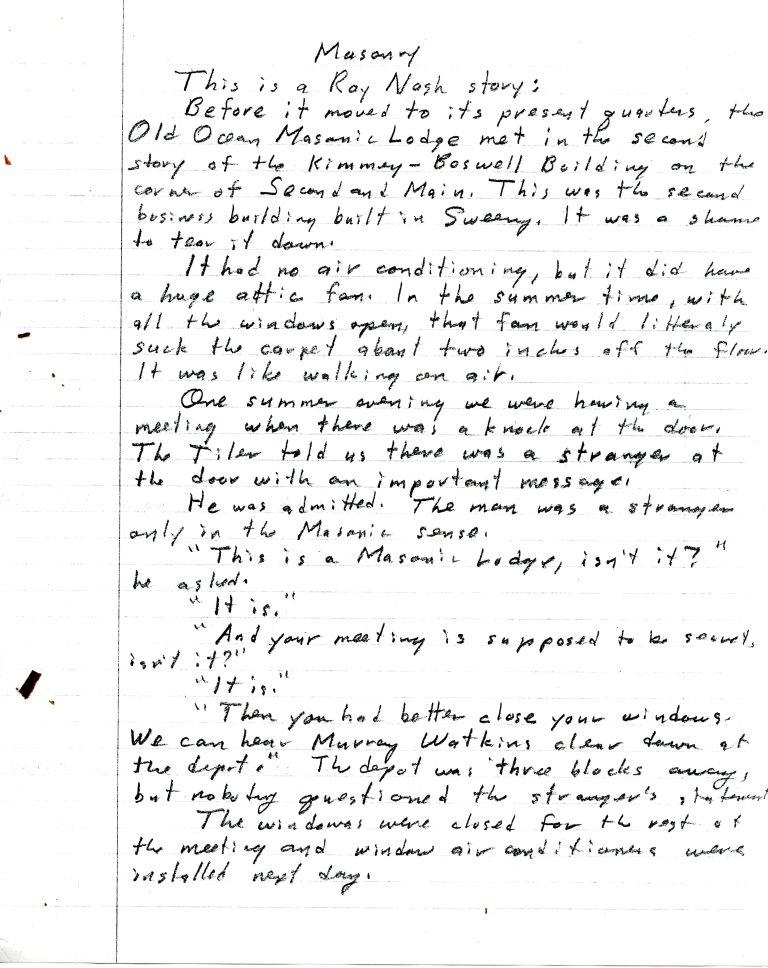 Masonry
This is a Ray Nash story:
Before it moved to its present quarters, the
Old Ocean Masonic Lodge met in the second
story of the Kimmey-Boswell Building on the
corner of Second and Main. This was the second
business building built in Sweeny. It was a shame
to tear it down.
It had no air conditioning, but it did have
a huge attic fan. In the summer time, with
all the windows open, that fan would litteraly
suck the carpet about two inches off the floor.
It was like walking on air.
One summer evening we were having a
meeting when there was a knock at the door.
The Tiler told us there was a stranger at
the door with an important message.
He was admitted. The man was a stranger
only in the Masonic sense.
"This is a Masonic Lodge, isn't it?"
he asked.
"It is."
"And your meeting is supposed to be secret,
isn't it?"
"It is."
"Then you had better close your windows.
We can hear Murray Watkins clear down at
the depot." Th depot was three blocks away,
but nobody questioned the stranger's statement
The windowas were closed for the rest of
the meeting and window air conditioners were
installed next day.